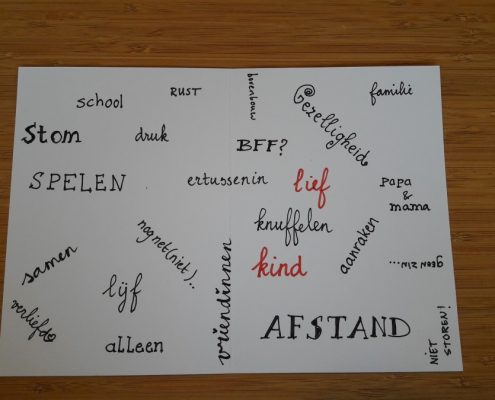 school
RUST
bovenbouw
Gezelligheid
familie
Stom
druk
BFF?
SPELEN
ertussenin
lief
papa
&
mama
knuffelen
aanraken
samen
nog net (niet)...
kind
geen zin...
lijf
vriendinnen
verliefd
alleen
AFSTAND
NIET
STOREN!